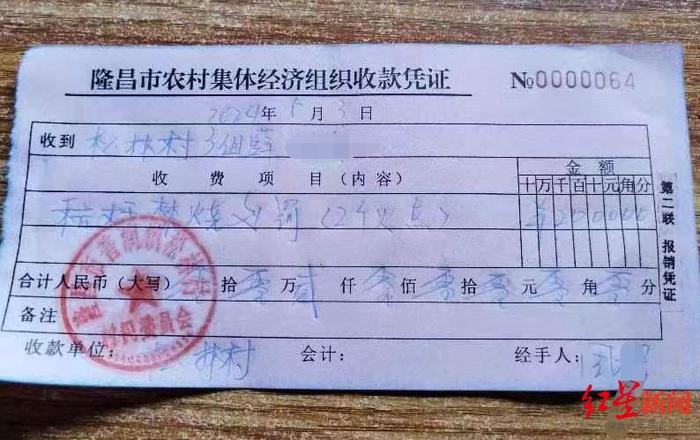 隆昌市农村集体经济组织收款凭证 №0000064
2024年5月3日
收到 松林村3组薛
收费项目(内容) 金额
十万千百十元角分
秸秆焚烧处罚(2个火点) ¥200000
合计人民币(大写) 零拾零万贰仟零佰零拾零元零角零分
备注
收款单位: 松林村 会计: 经手人:
第二联 报销凭证
村民委员会
红星新闻